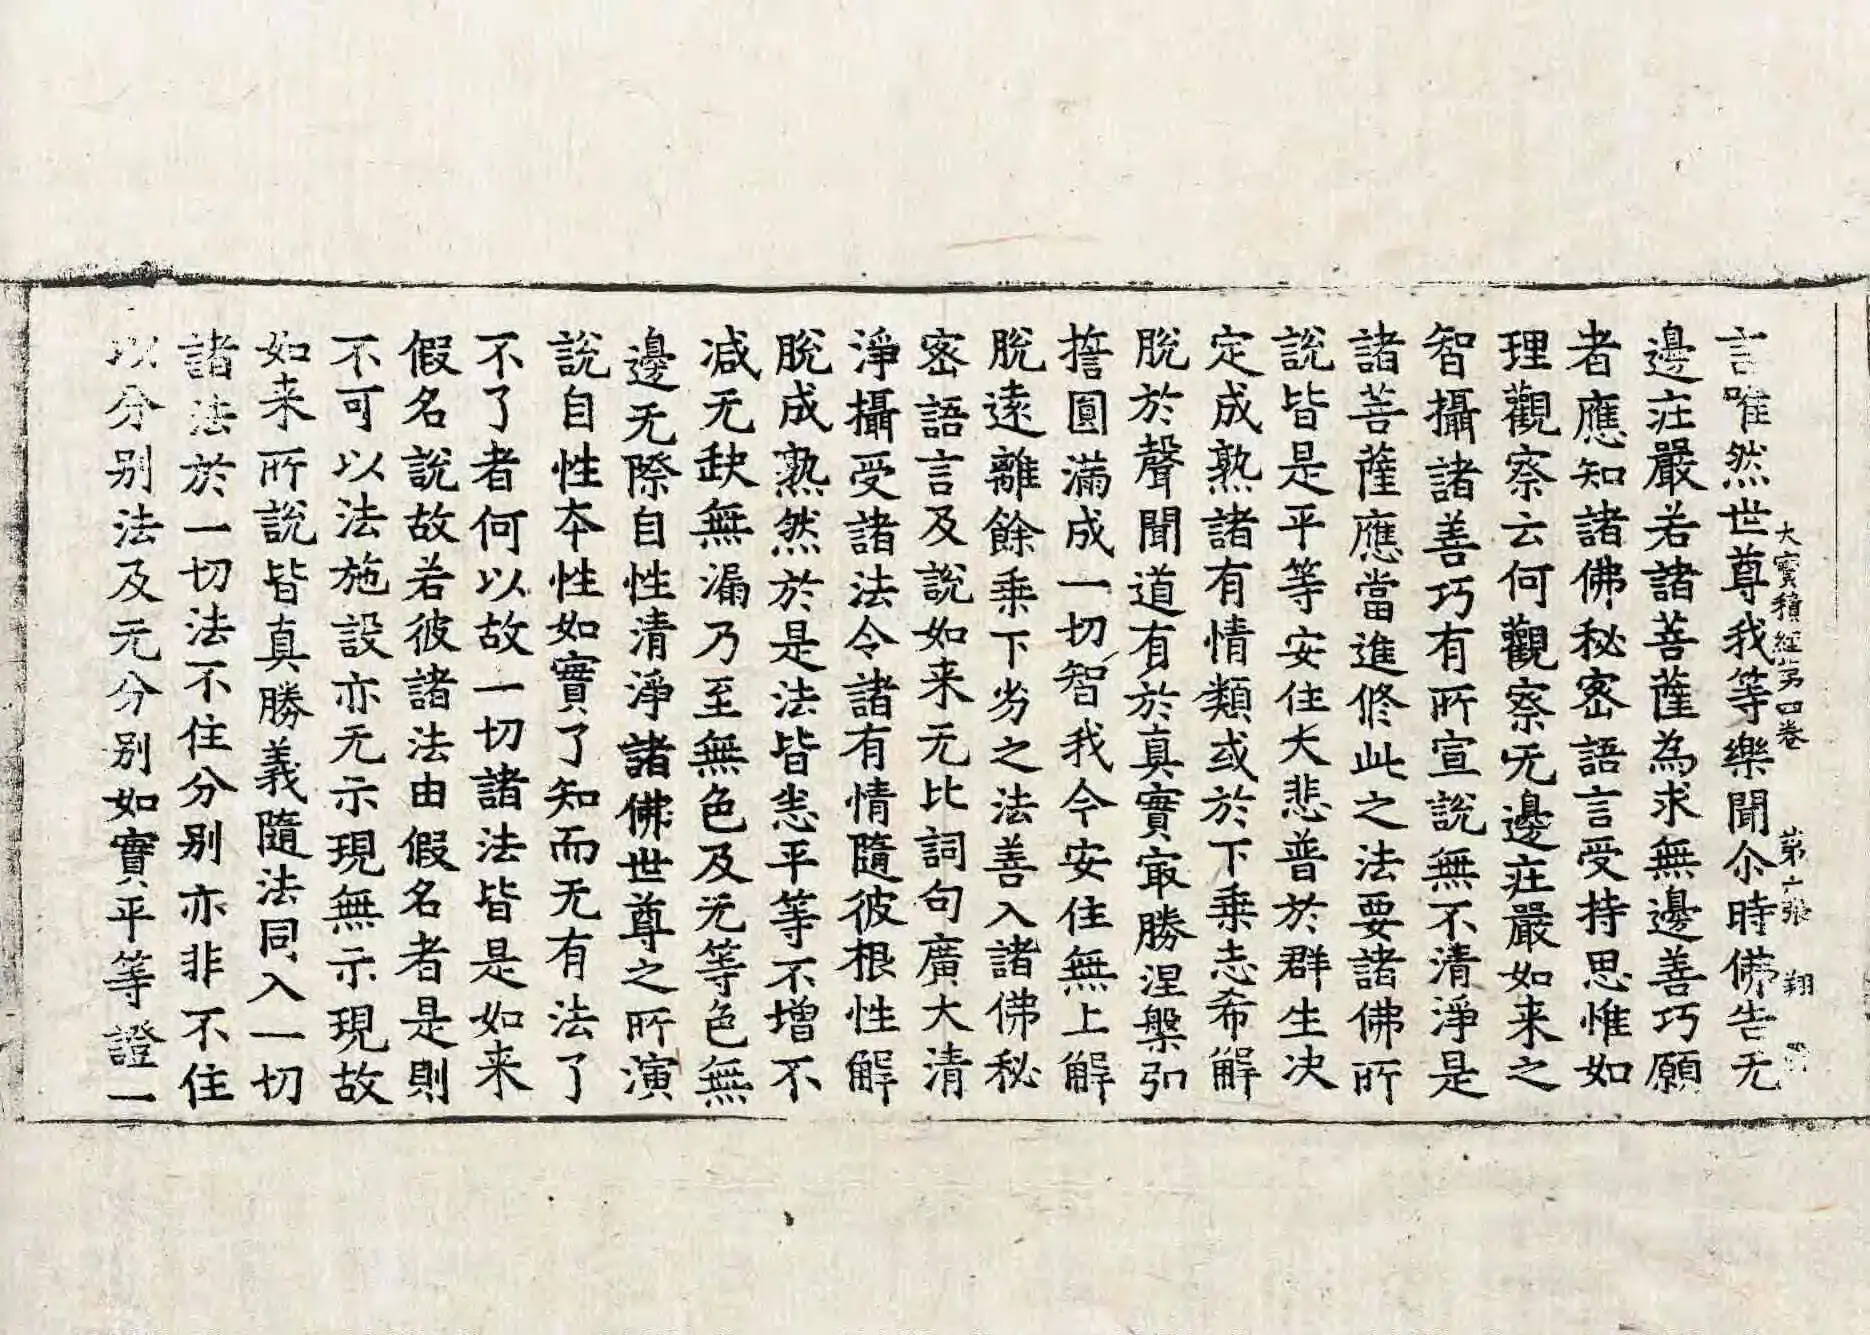 大寳積經第四卷 第六張 翔
言唯然世尊我等樂聞尒時佛告无
邊庄嚴若諸菩薩為求無邊善巧願
者應知諸佛秘密語言受持思惟如
理觀察云何觀察无邊庄嚴如来之
智攝諸善巧有所宣說無不清淨是
諸菩薩應當進修此之法要諸佛所
說皆是平等安住大悲普於群生决
定成熟諸有情類或於下乗志希解
脫於聲聞道有於真實㝡勝涅槃引
擔圓滿成一切智我今安住無上解
脫遠離餘乗下劣之法善入諸佛秘
密語言及說如来无比詞句廣大清
淨攝受諸法令諸有情隨彼根性解
脫成熟然於是法皆悉平等不增不
减无缺無漏乃至無色及无等色無
邊无際自性清淨諸佛世尊之所演
說自性本性如實了知而无有法了
不了者何以故一切諸法皆是如来
假名說故若彼諸法由假名者是則
不可以法施設亦无示現無示現故
如来所說皆真勝義隨法同入一切
諸法於一切法不住分别亦非不住
以分别法及无分别如實平等證一